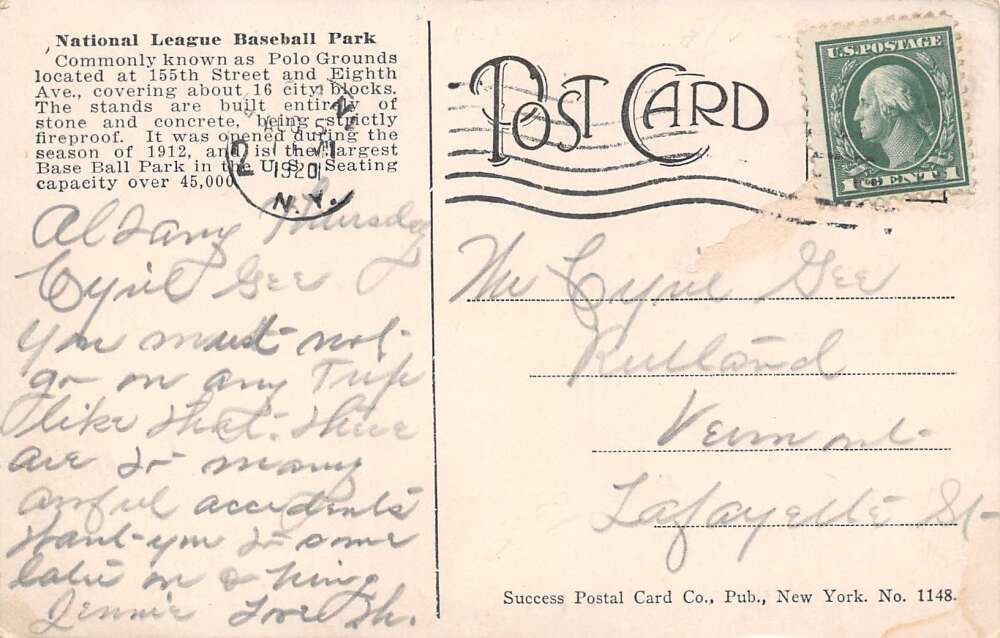 National League Baseball Park
Commonly known as Polo Grounds
located at 155th Street and Eighth
Ave., covering about 16 city blocks.
The stands are built entirely of
stone and concrete, being strictly
fireproof. It was opened during the
season of 1912, and is the largest
Base Ball Park in the U.S. Seating
capacity over 45,000.
2
1920
N.Y.
POST CARD
U.S. POSTAGE
1 CENT 1
Albany Thursday
Cyril Gee
You must not
go on any Trip
like that. There
are so many
awful accidents
Want you to come
later on
Jennie Love
Mr Cyril Gee
Rutland
Vermont
Lafayette St
Success Postal Card Co., Pub., New York. No. 1148.